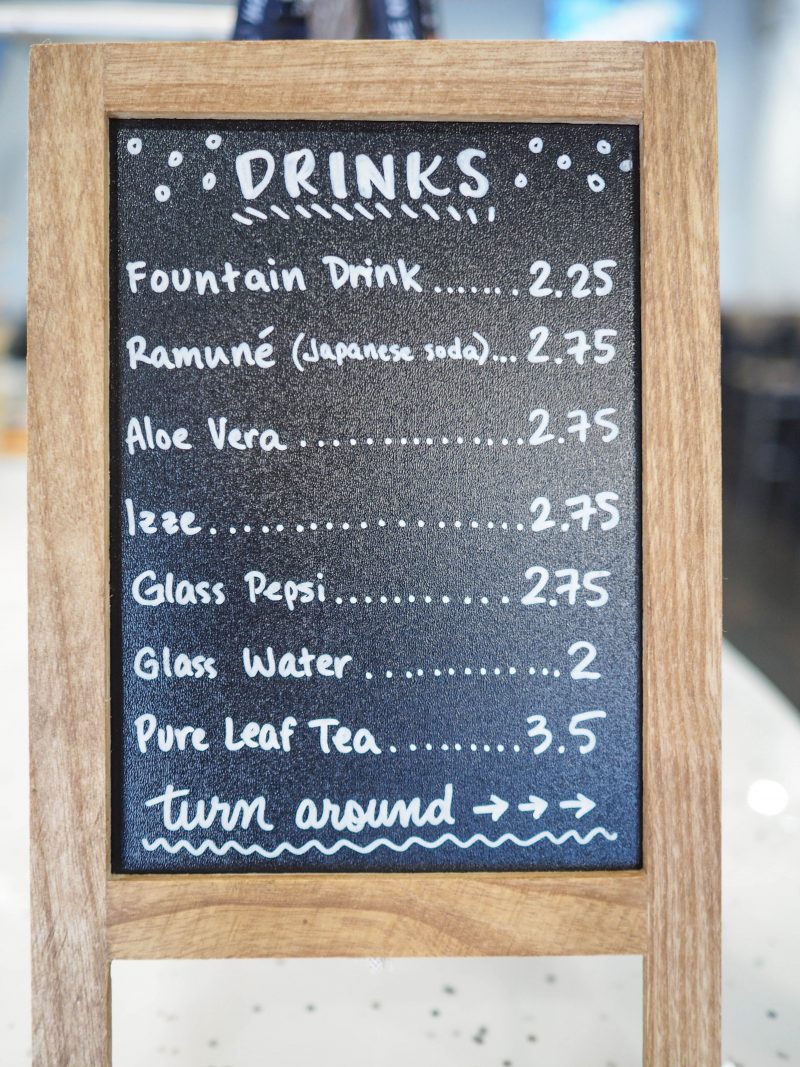 DRINKS
Fountain Drink....... 2.25
Ramuné (Japanese soda)... 2.75
Aloe Vera ................ 2.75
Izze................... 2.75
Glass Pepsi............ 2.75
Glass Water ............. 2
Pure Leaf Tea......... 3.5
turn around → → →